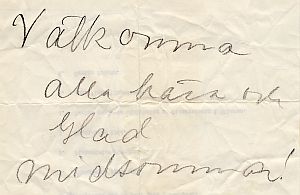 Välkomna
alla kära och
Glad
midsommar!